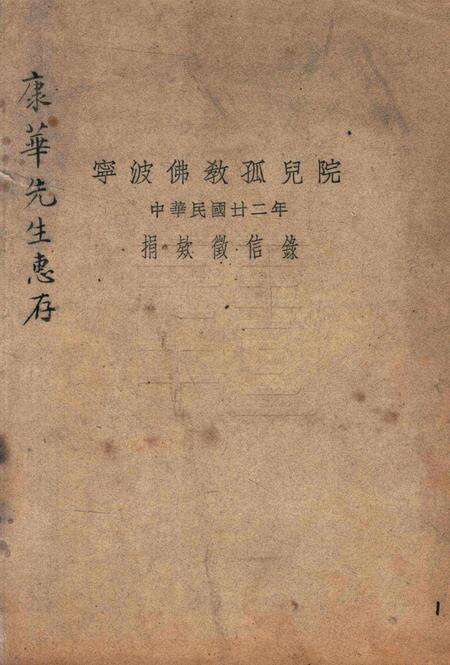 寧波佛教孤兒院
中華民國廿二年
捐款徵信錄
康華先生惠存
1